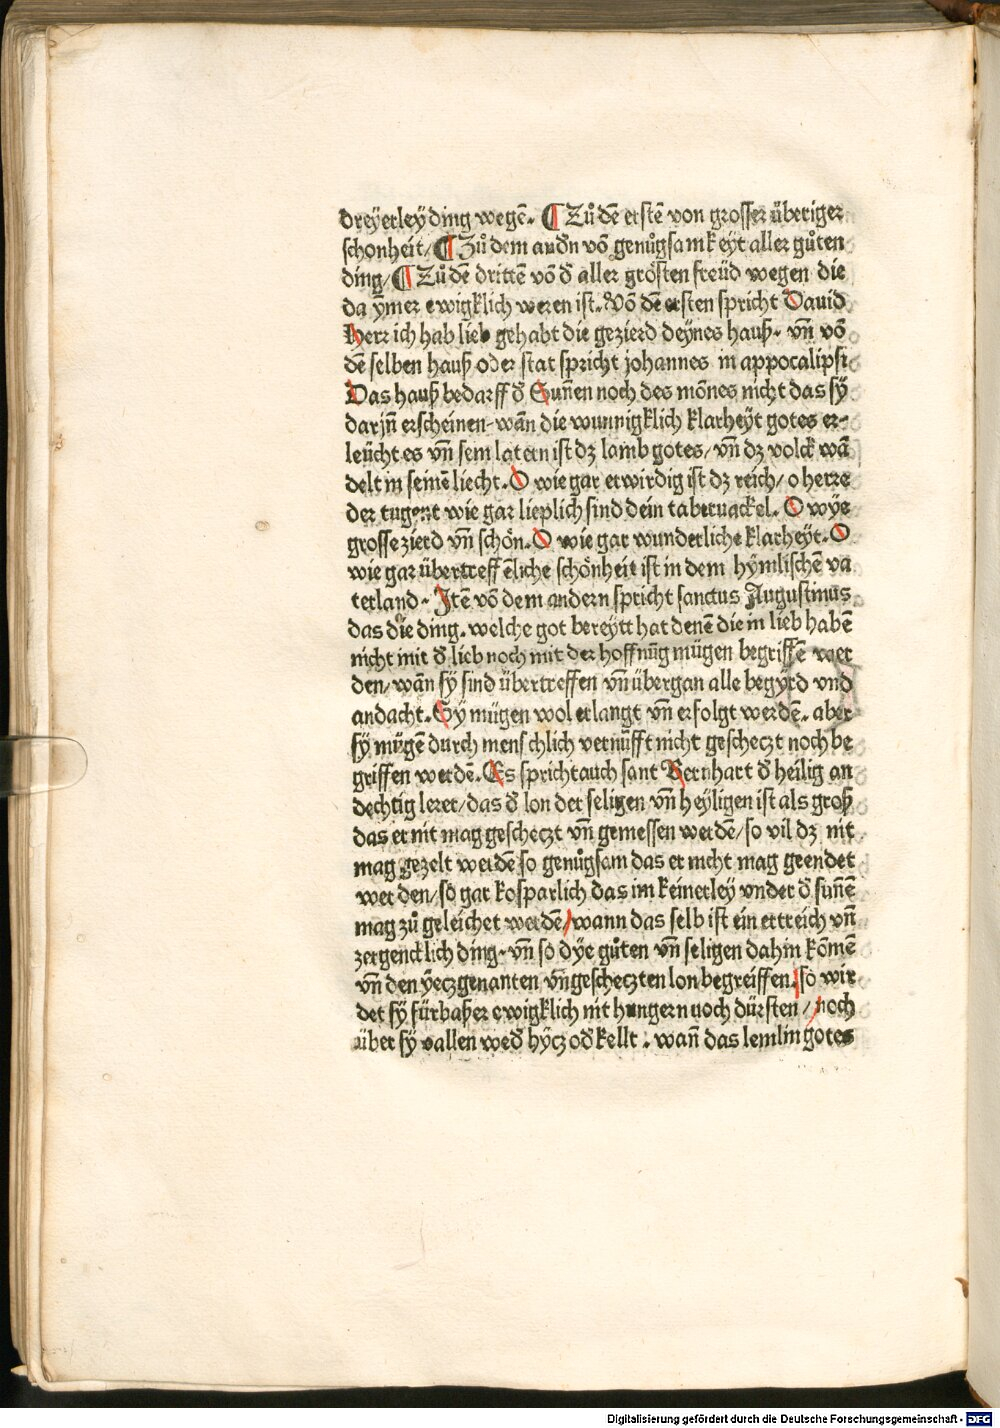 dreÿerley ding wegē. ¶ Zů dē erstē von grosser überiger
schonheit/ ¶ Zů dem andn̄ vō genůgsamkeyt aller gůten
ding/ ¶ Zů dē drittē vō d̄ aller grösten freüd wegen die
da ÿmer ewigklich weren ist. Vō dē ersten spricht Dauid
Herr ich hab lieb gehabt die gezierd deÿnes hauß. vn̄ vō
dē selben hauß oder stat spricht johannes in appocalipsi
Das hauß bedarff d̄ Sun̄en noch des mōnes nicht das sÿ
darjn̄ erscheinen. wān die wunnigklich klarheÿt gotes er-
leücht es vn̄ sein latern ist dz lamb gotes/ vn̄ dz volck wā
delt in seinē liecht. O wie gar erwirdig ist dz reich/ o herre
der tugent wie gar lieplich sind dein tabernackel. O wÿe
grosse zierd vn̄ schön. O wie gar wunderliche klarheÿt. O
wie gar übertreffēliche schönheit ist in dem hÿmlischē va
terland. Itē vō dem andern spricht sanctus Augustinus
das die ding. welche got bereytt hat denē die in lieb habē
nicht mit d̄ lieb noch mit der hoffnūg mügen begriffē wer
den/ wān sÿ sind übertreffen vn̄ übergan alle begÿrd vnd
andacht. Sÿ mügen wol erlangt vn̄ erfolgt werdē. aber
sÿ mügē durch menschlich vernūfft nicht gescheczt noch be
griffen werdē. Es spricht auch sant Bernhart d̄ heilig an
dechtig lerer/ das d̄ lon der seligen vn̄ heÿligen ist als groß
das er nit mag geschëczt vn̄ gemessen werdē/ so vil dz nit
mag gezelt werdē so genůgsam das er nicht mag geendet
werden/ so gar kosparlich das im keinerley vnder d̄ sun̄ē
mag zů geleichet werdē/ wann das selb ist ein ertreich vn̄
zergencklich ding. vn̄ so dÿe gůten vn̄ seligen dahin kōmē
vn̄ den ÿeczgenanten vn̄gescheczten lon begreiffen. so wir
det sÿ fürbaßer ewigklich nit hungern noch dürsten / noch
über sÿ vallen wed̄ hÿcz od̄ kellt . wan̄ das lemlin gotes
Digitalisierung gefördert durch die Deutsche Forschungsgemeinschaft - DFG